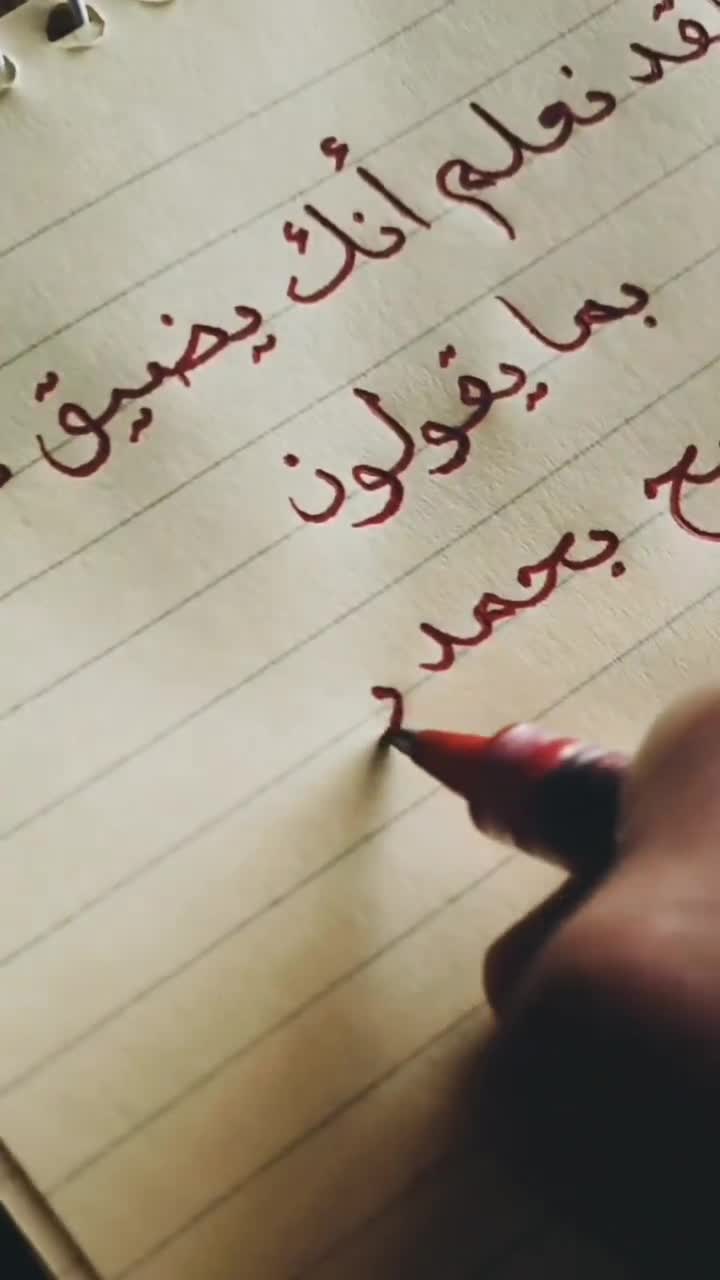 قد نعلم أنك يضيق
بما يقولون
بحمد